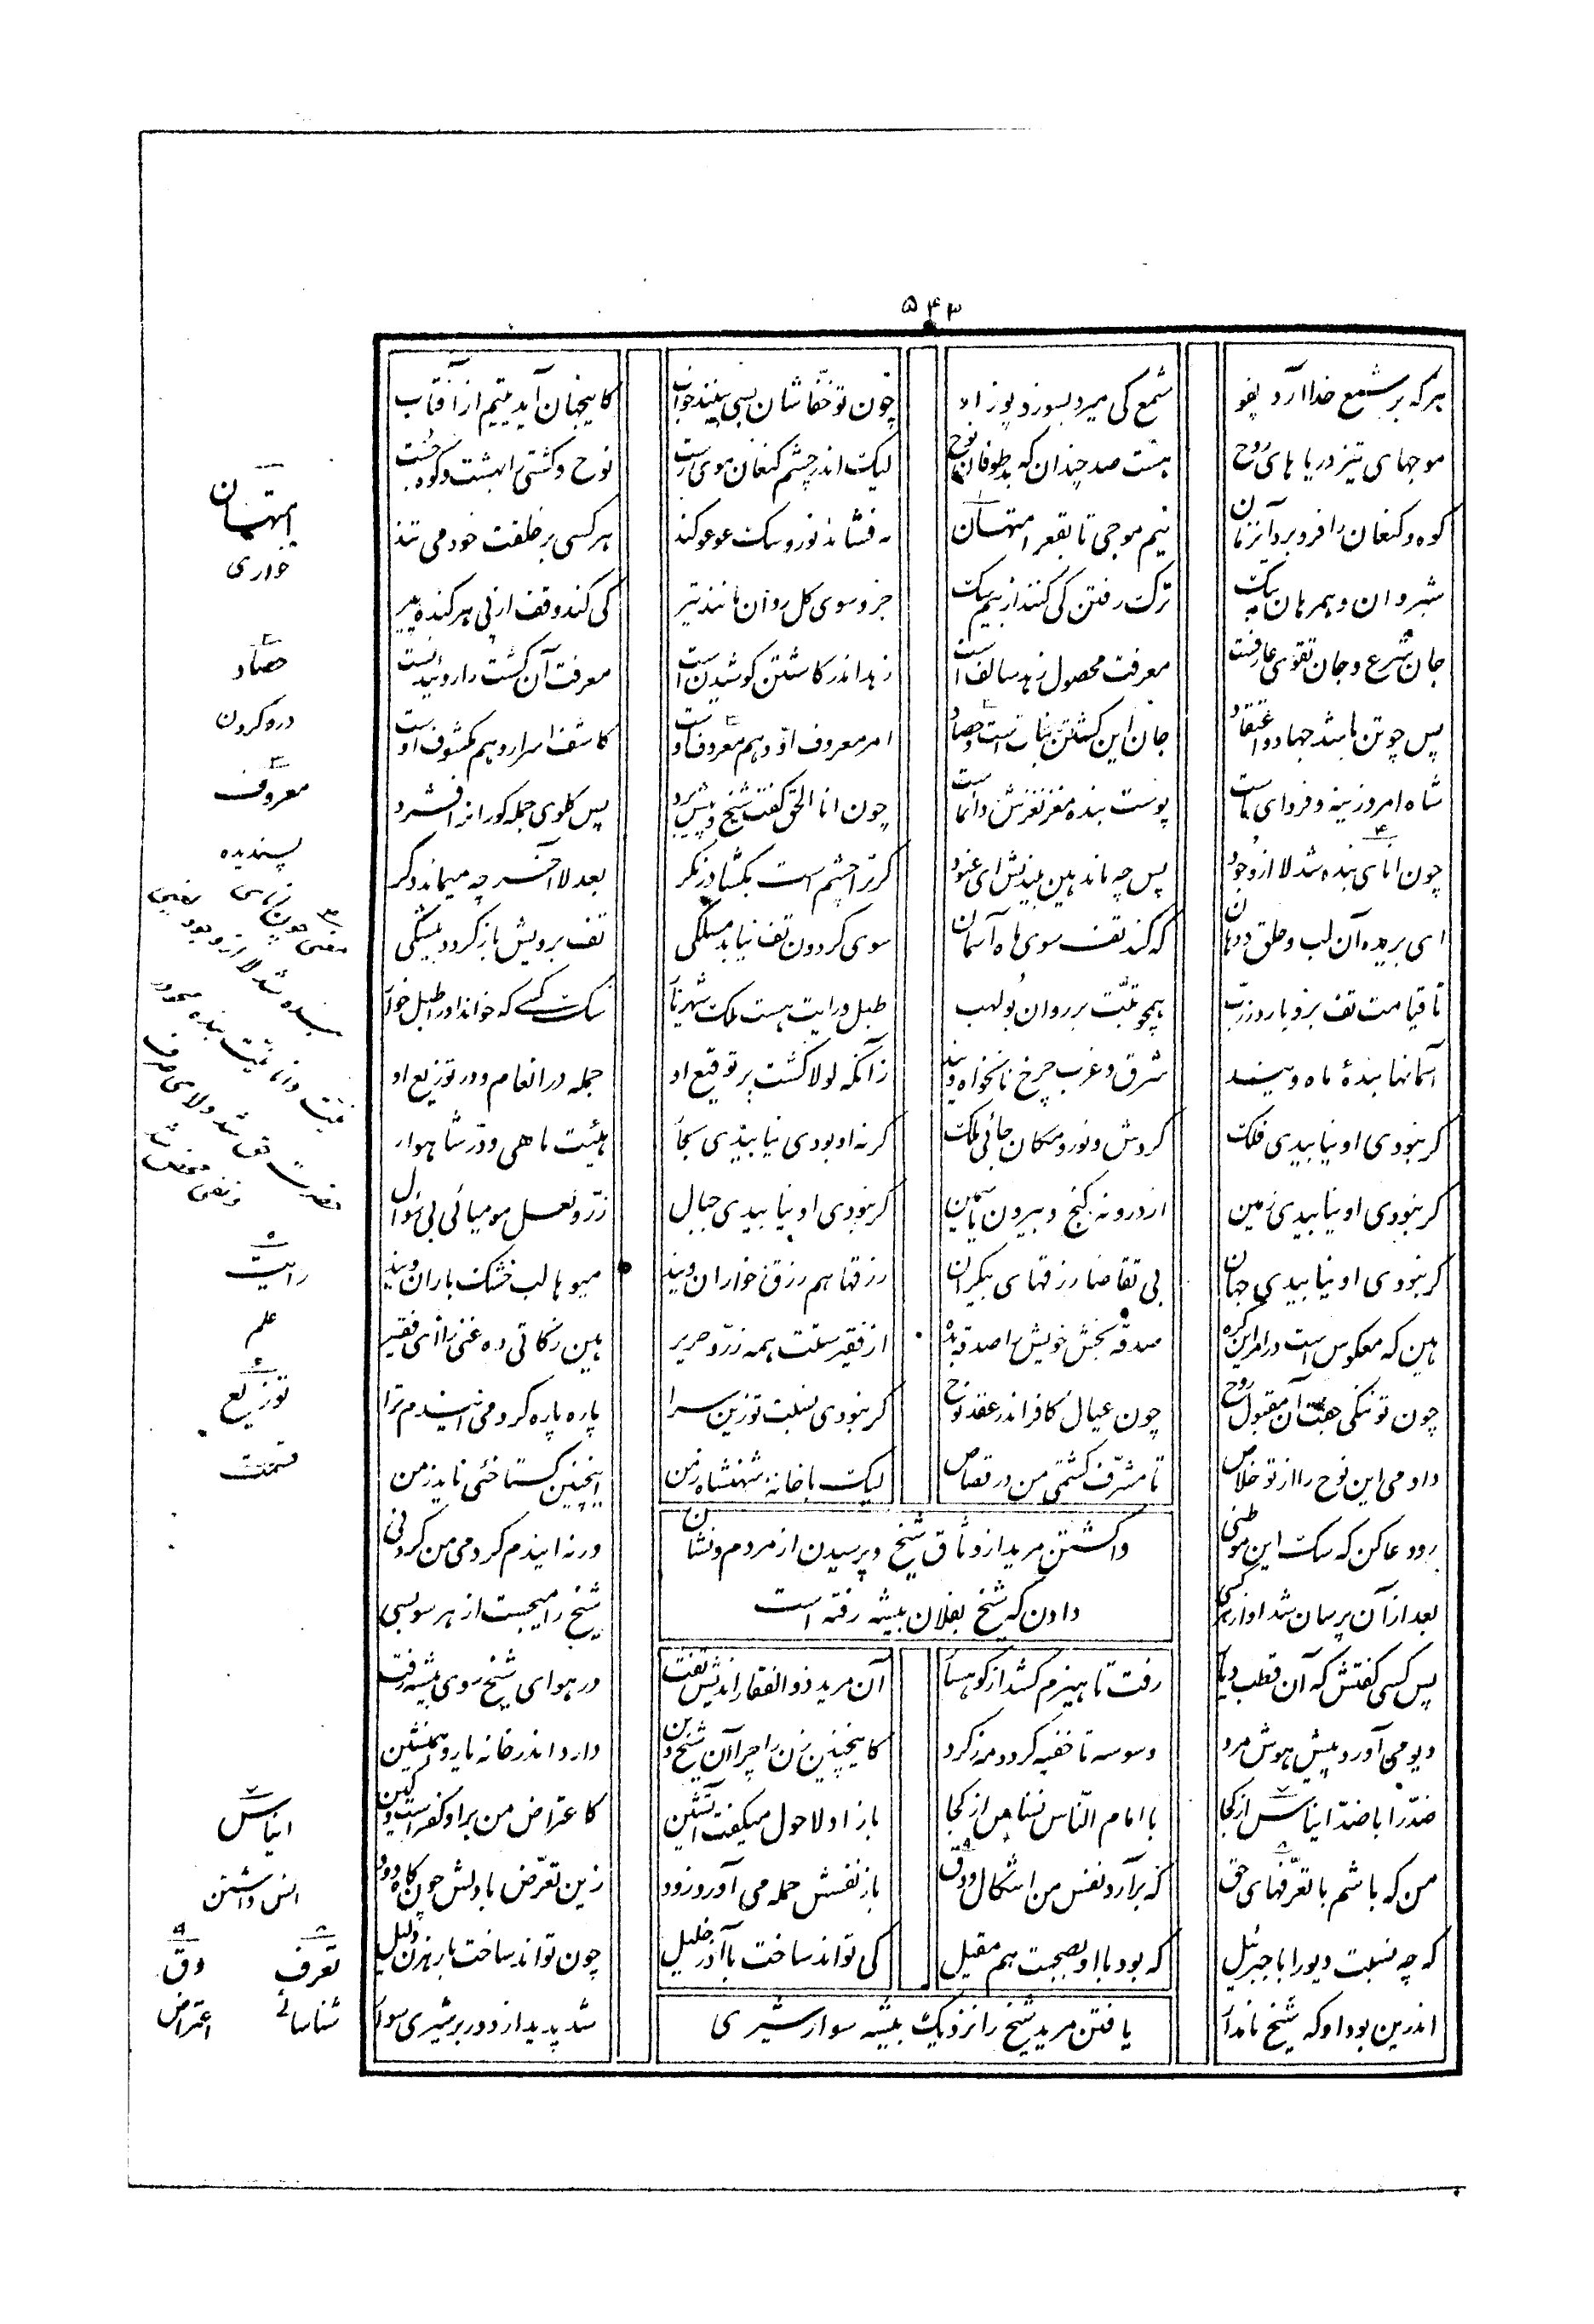 ۵۴۳
هر که بر شمع خدا آرد پفو شمع کی میرد بسوزد پوز او چون تو خفّاشان بسی بینند خواب کاینجهان آید یتیم از آفتاب
موجهای تیز دریاهای روح هست صد چندان که بد طوفان نوح لیک اندر چشم کنعان موی رست نوح و کشتی را بهشت و کوه جست
کوه و کنعان را فرو برد آنزمان نیم موجی تا بقعر امتهان مه فشاند نور و سک عوعو کند هر کسی بر خلقت خود می تند
شبروان و همرهان مه بتک ترک رفتن کی کنند از بیم سک جزو سوی کل روان مانند تیر کی کند وقف از پی هر کنده پیر
جان شرع و جان تقوی عارفست معرفت محصول زهد سالف است زهد اندر کاشتن کوشیدن است معرفت آن کشت را روئیدنست
پس چو تن باشد جهاد و اعتقاد جان این کشتن نبات است و حصاد امر معروف او و هم معروف اوست کاشف اسرار و هم مکشوف اوست
شاه امروزینه و فردای ماست پوست بنده مغز نغزش دائماست چون انا الحق گفت شیخ و پیش برد پس کلوی جمله کوران را فشرد
چون انای بنده شد لا از وجود پس چه ماند هین بیندیش ای عنود کر ترا چشم است بکشا در نکر بعد لا آخر چه میماند دکر
ای بریده آن لب و حلق و دهان که کند تف سوی ماه آسمان سوی کردون تف نیابد مسلکی تف برویش باز کردد بیشکی
تا قیامت تف برو بارد ز ربّ همچو تبّت بر روان بولهب طبل و رایت هست ملک شهریار سک کسی که خواند او را طبل خوار
آسمانها بندهٔ ماه ویند شرق و غرب چرخ نانخواه ویند زآنکه لولاکست بر توقیع او جمله در انعام و در توزیع او
کر نبودی او نیابیدی فلک کردش و نور و مکان جائی ملک کر نه او بودی نیابیدی بحار هیئت ماهی و درّ شاهوار
کر نبودی او نیابیدی زمین از درونه کنج و بیرون یاسمین کر نبودی او نیابیدی جبال زرّ و لعل و مومیائی بی سؤال
کر نبودی او نیابیدی جهان بی تقاضا رزقهای بیکران رزقها هم رزق خواران ویند میوها لب خشک باران ویند
هین که معکوس است در امر این کره صدقه بخش خویش را صدقه بده از فقیرستت همه زرّ و حریر هین زکاتی ده غنی را ای فقیر
چون تو ننکی جفت آن مقبول روح چون عیال کافر اندر عقد نوح کر نبودی نسبت تو زین سرا پاره پاره کردمی ایندم ترا
دادمی این نوح را از تو خلاص تا مشرّف کشتمی من در قصاص لیک با خانهٔ شهنشاه زمن اینچنین کستاخئی ناید ز من
رو دعا کن که سک این موطنی ورنه ایندم کردمی من کردنی
واکشتن مرید از وثاق شیخ و پرسیدن از مردم و نشان
دادن که شیخ بفلان بیشه رفته است
بعد از آن پرسان شد او از هر کسی شیخ را میجست از هر سو بسی
پس کسی کفتش که آن قطب دیار رفت تا هیزم کشد از کوهسار آن مرید ذوالفقار اندیش تفت در هوای شیخ سوی بیشه رفت
دیو می آورد پیش هوش مرد وسوسه تا خفیه کردد مه ز کرد کاینچنین زن را چرا آن شیخ دین دارد اندر خانه یار و همنشین
ضدّ را با ضدّ ایناس از کجا با امام النّاس نسناس از کجا باز او لاحول میکفت آتشین کاعتراض من برو کفر است و کین
من که باشم با تعرّفهای حق که برآرد نفس من اشکال و دق باز نفسش حمله می آورد زود زین تعرّض با دلش چون کاه دود
که چه نسبت دیو را با جبرئیل که بود با او بصحبت هم مقیل کی تواند ساخت با آذر خلیل چون تواند ساخت با رهزن دلیل
یافتن مرید شیخ را نزدیک بیشه سوار شیری
اندرین بود او که شیخ نامدار شد پدید از دور بر شیری سوار
امتهان
خواری
۲
حصاد
درو کردن
۳
معروف
پسندیده
۵
رایت
علم
۶
توزیع
قسمت
۷
ایناس
انس داشتن
۸
تعرف
شناسائی
۹
دق
اعتراض